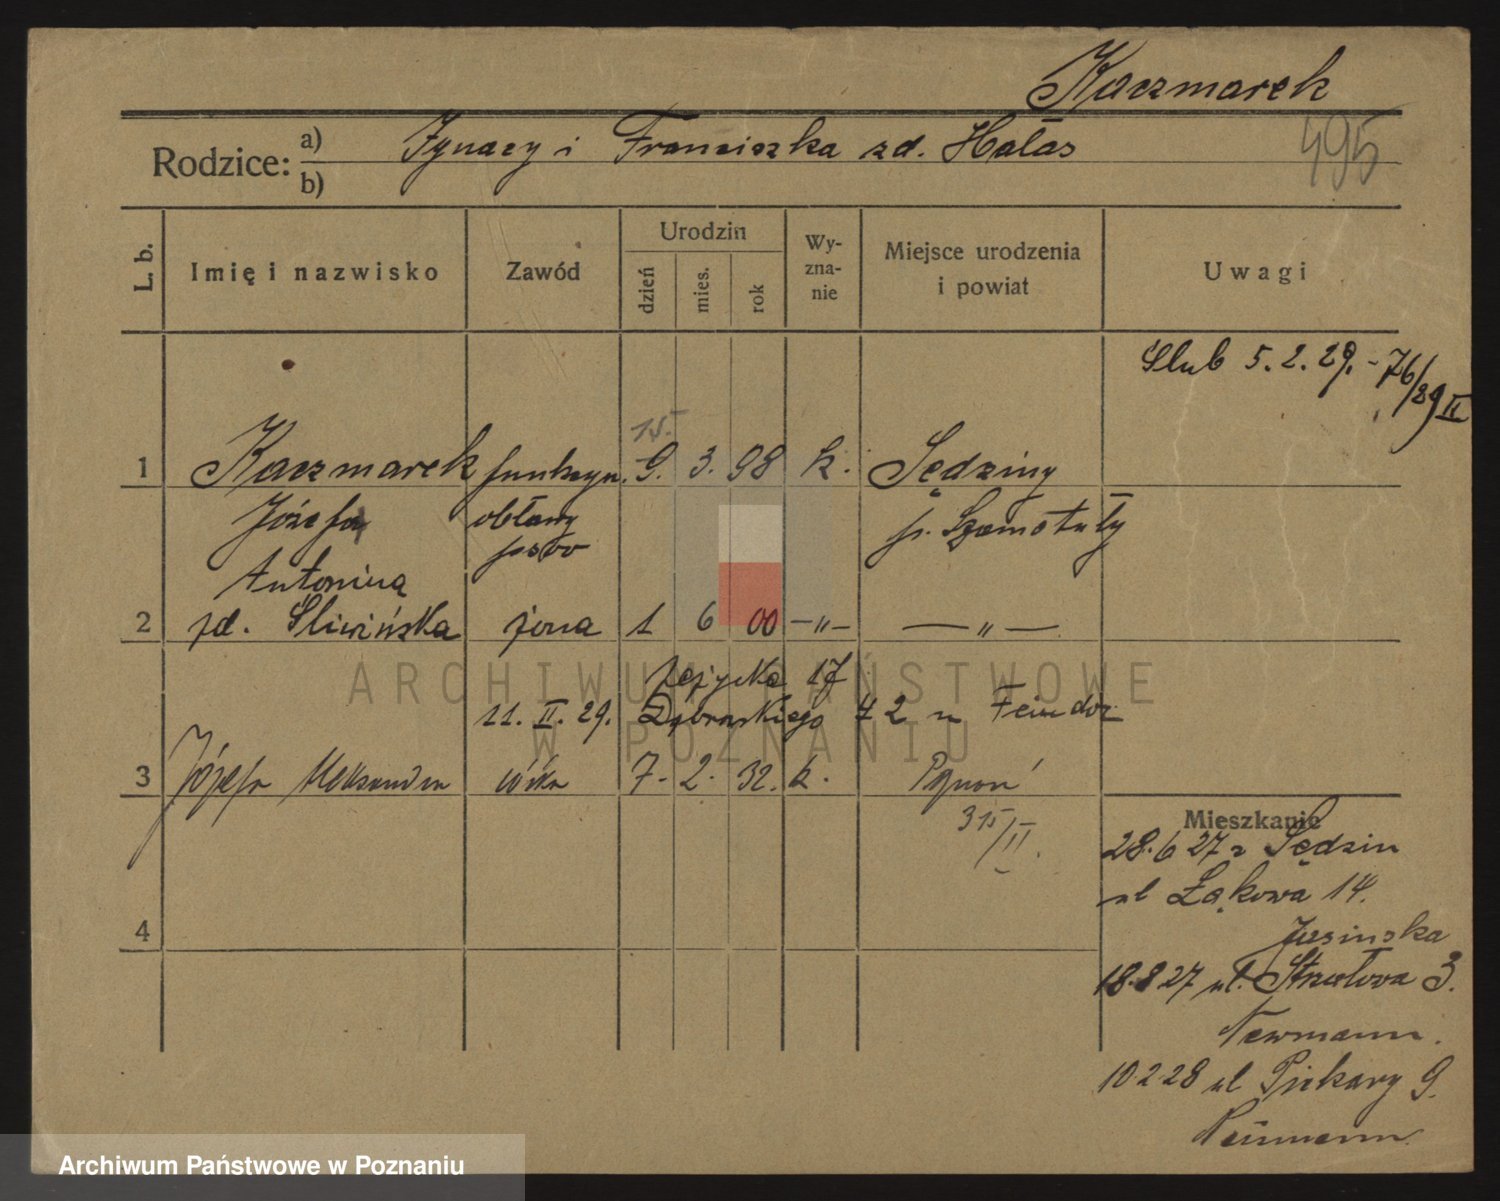 Kaczmarek
Rodzice: a) Ignacy i Franciszka zd. Hałas
b)
495
L. b. Imię i nazwisko Zawód Urodzin dzień mies. rok Wy-zna-nie Miejsce urodzenia i powiat Uwagi
Ślub 5.2.29. - 76/29 II
15.
1 Kaczmarek funkcyn. 9. 3. 98 k. Sędziny
Józefa obłąwy p. Szamotuły
Antonina
2 zd. Śliwińska żona 1 6 00 —„— —„—
11. II. 29. Dąbrowskiego 42
3 Józefa Aleksandra córka 7. 2. 32. k. Poznań
315/II.
Mieszkanie
28.6 27 z Sędzin
ul Łąkowa 14.
Jasinska
4
18.8 27 ul. Strzałowa 3.
Newmann.
10.2.28 ul Piekary 9.
Neumann.
ARCHIWUM PAŃSTWOWE
W POZNANIU
Archiwum Państwowe w Poznaniu